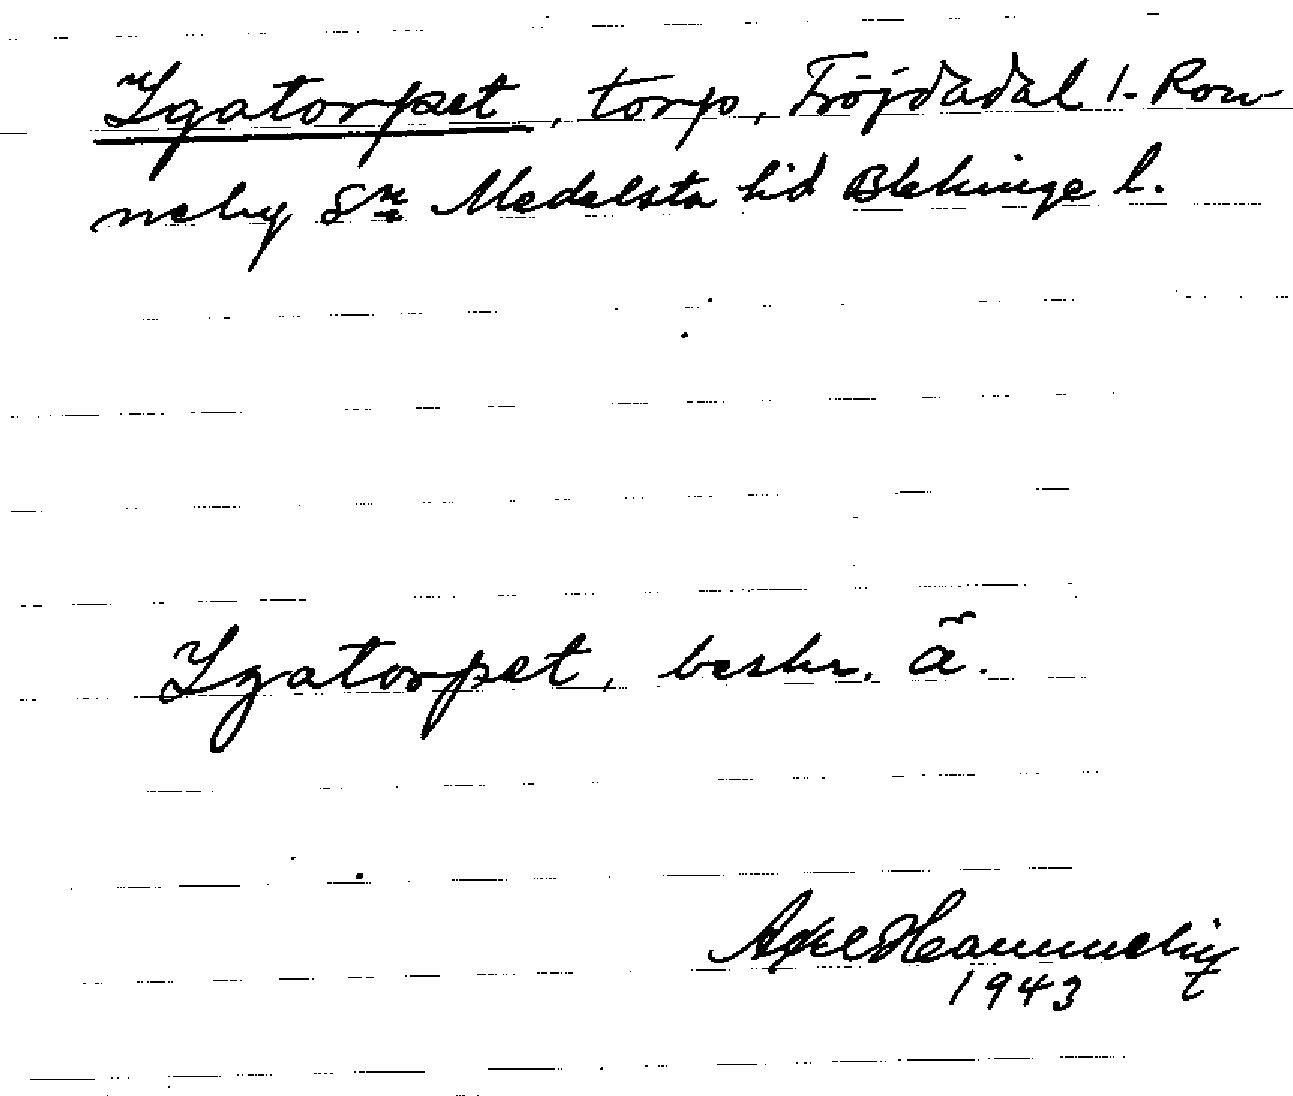 Igatorpet, torp, Fröjdadal 1. Ron-
neby Sn Medelsta hd Blekinge l.
Igatorpet, beskr. å.
1943